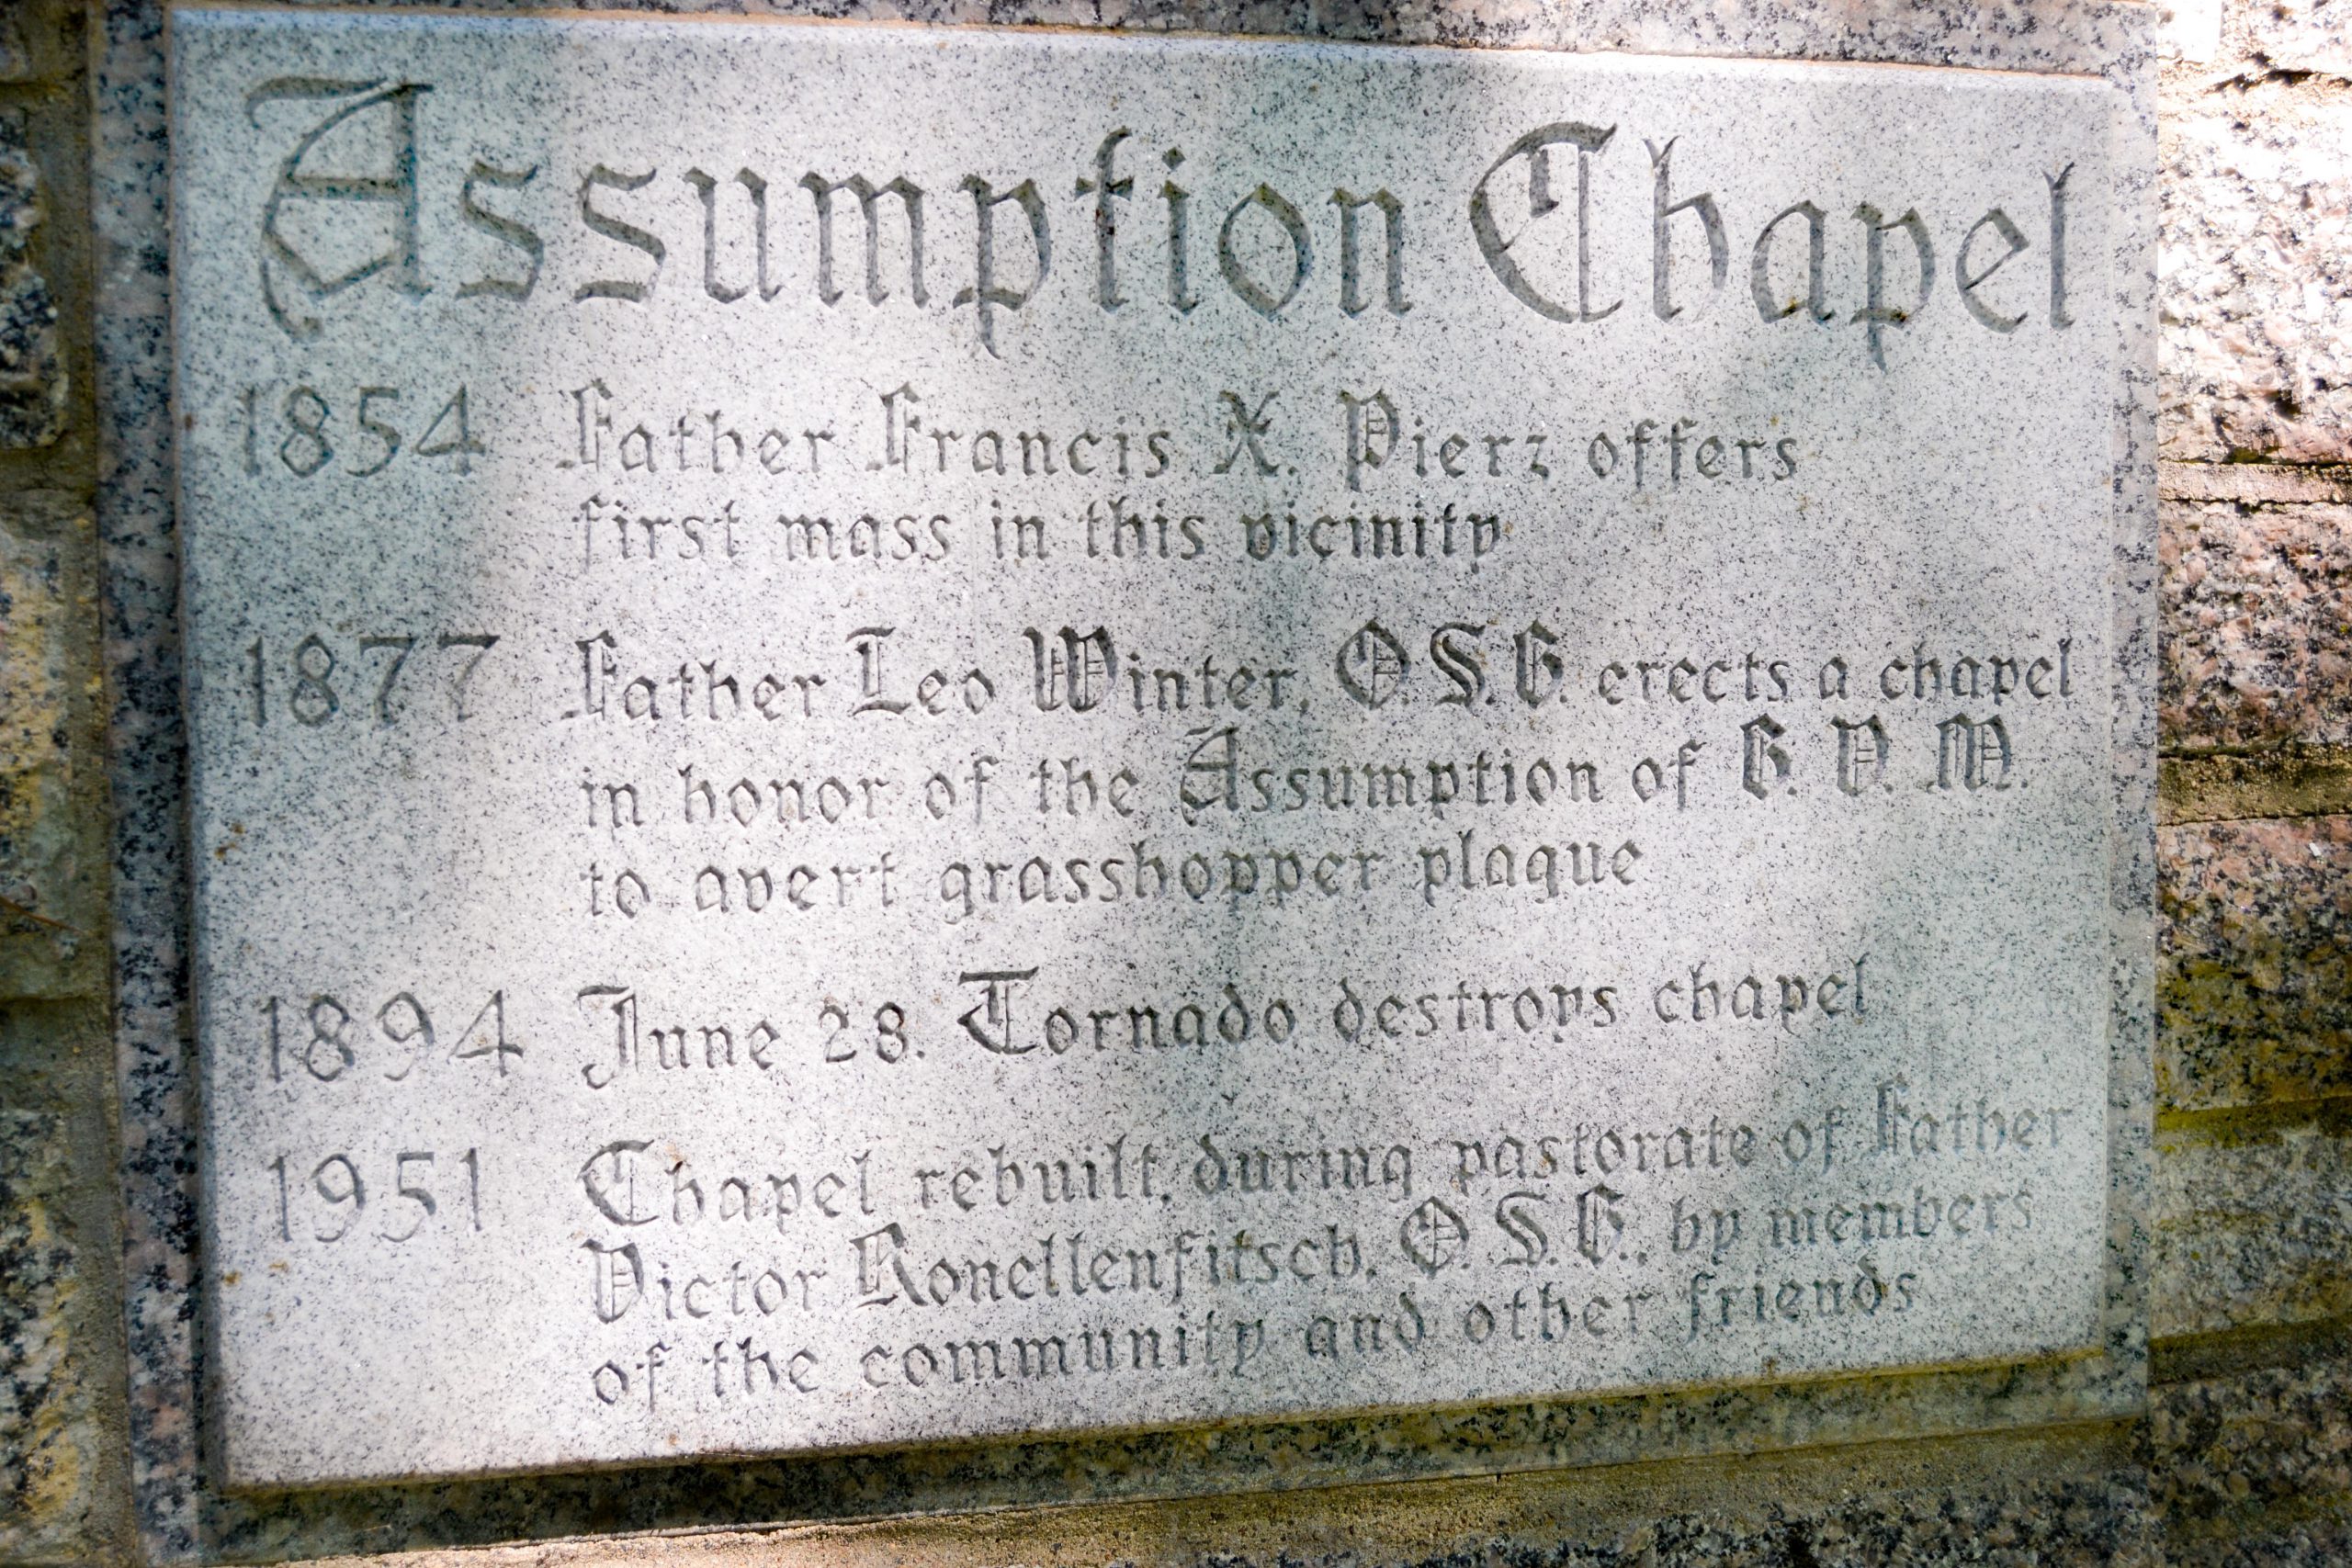 Assumption Chapel
1854 Father Francis X. Pierz offers
first mass in this vicinity
1877 Father Leo Winter, O.S.B. erects a chapel
in honor of the Assumption of B. V. M.
to avert grasshopper plague
1894 June 28. Tornado destroys chapel
1951 Chapel rebuilt, during pastorate of Father
Victor Ronellenfitsch, O.S.B., by members
of the community and other friends